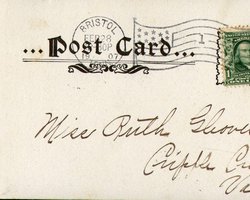 BRISTOL
FEB 28
1907
...Post Card...
1
Miss Ruth Glover
Cripple
Va